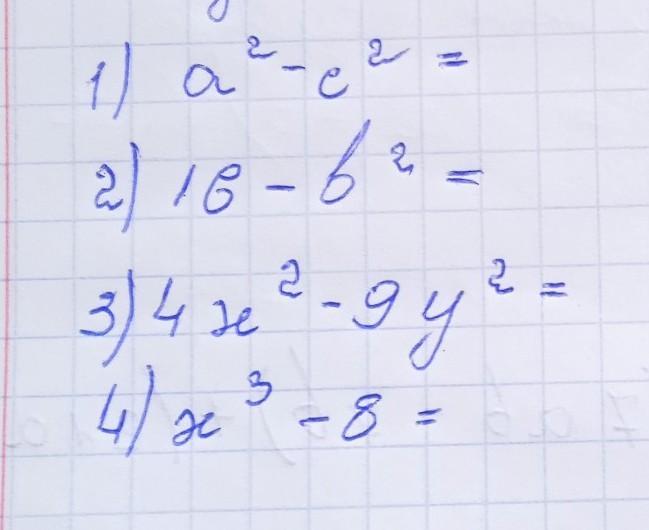 1) a² - c² =
2) 16 - b² =
3) 4x² - 9y² =
4) x³ - 8 =